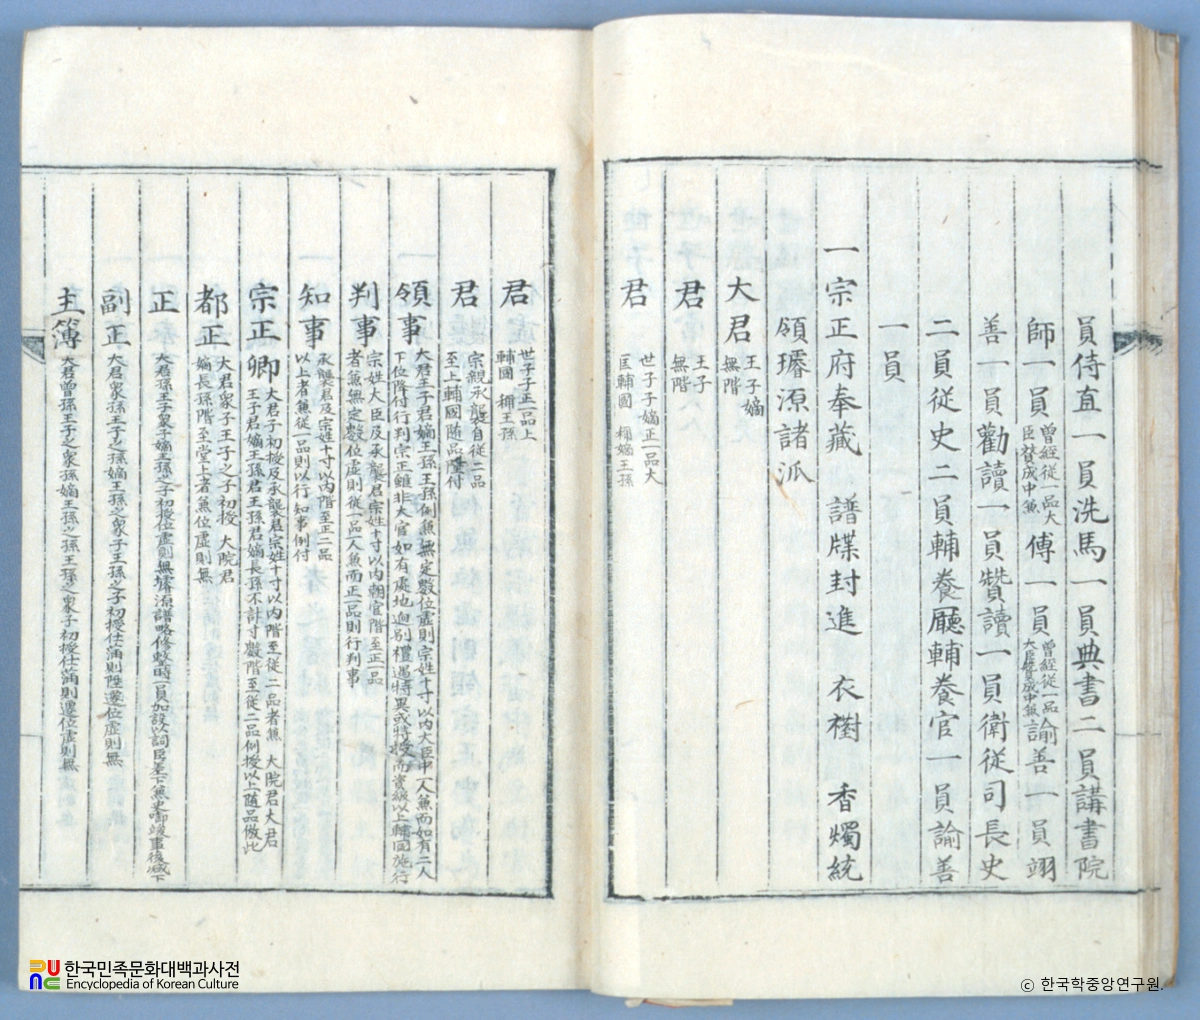 員侍直一員洗馬一員典書二員講書院
師一員曾經從一品大臣贊成中兼傅一員曾經從一品大臣贊成中兼諭善一員翊
善一員勸讀一員贊讀一員衛從司長史
二員從史二員輔養廳輔養官一員諭善
一員
一宗正府奉藏 譜牒封進 衣樹 香燭統
領璿源諸派
大君王子嫡無階
君王子無階
君世子子嫡正一品大匡輔國 稱嫡王孫
君世子子正一品上輔國 稱王孫
君宗親承襲自從二品至上輔國隨品陞付
領事大君王子君嫡王孫王孫例兼無定數位虛則宗姓十寸以內大臣中一人兼而如有二人下位陞付行判宗正雖非大官如有處地逈別禮遇特異或特授而資級以上輔國施行
判事宗姓大臣及承襲君宗姓十寸以內朝官階至正一品者兼無定數位虛則從一品一人兼而正一品則行判事
知事承襲君及宗姓十寸以內階至正二品以上者兼從一品則以行知事例付
宗正卿大君子初授及承襲君宗姓十寸以內階至從二品者兼 大院君大君王子君嫡王孫君王孫君嫡長孫不計寸數階至從二品例授以上隨品倣此
都正大君衆子王子之子初授 大院君嫡長孫階至堂上者兼位虛則無
正大君孫王子衆子嫡王孫之子初授位虛則無璿源譜略修整時一員加設以詞臣差下兼史啣竣事後減下
副正大君衆孫王子之孫嫡王孫之衆子王孫之子初授仕滿則陞遷位虛則無
主簿大君曾孫王子之衆孫嫡王孫之孫王孫之衆子初授仕滿則遷位虛則無
한국민족문화대백과사전
Encyclopedia of Korean Culture
ⓒ 한국학중앙연구원.